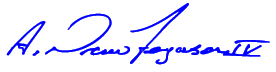 A. Drew Ferguson IV